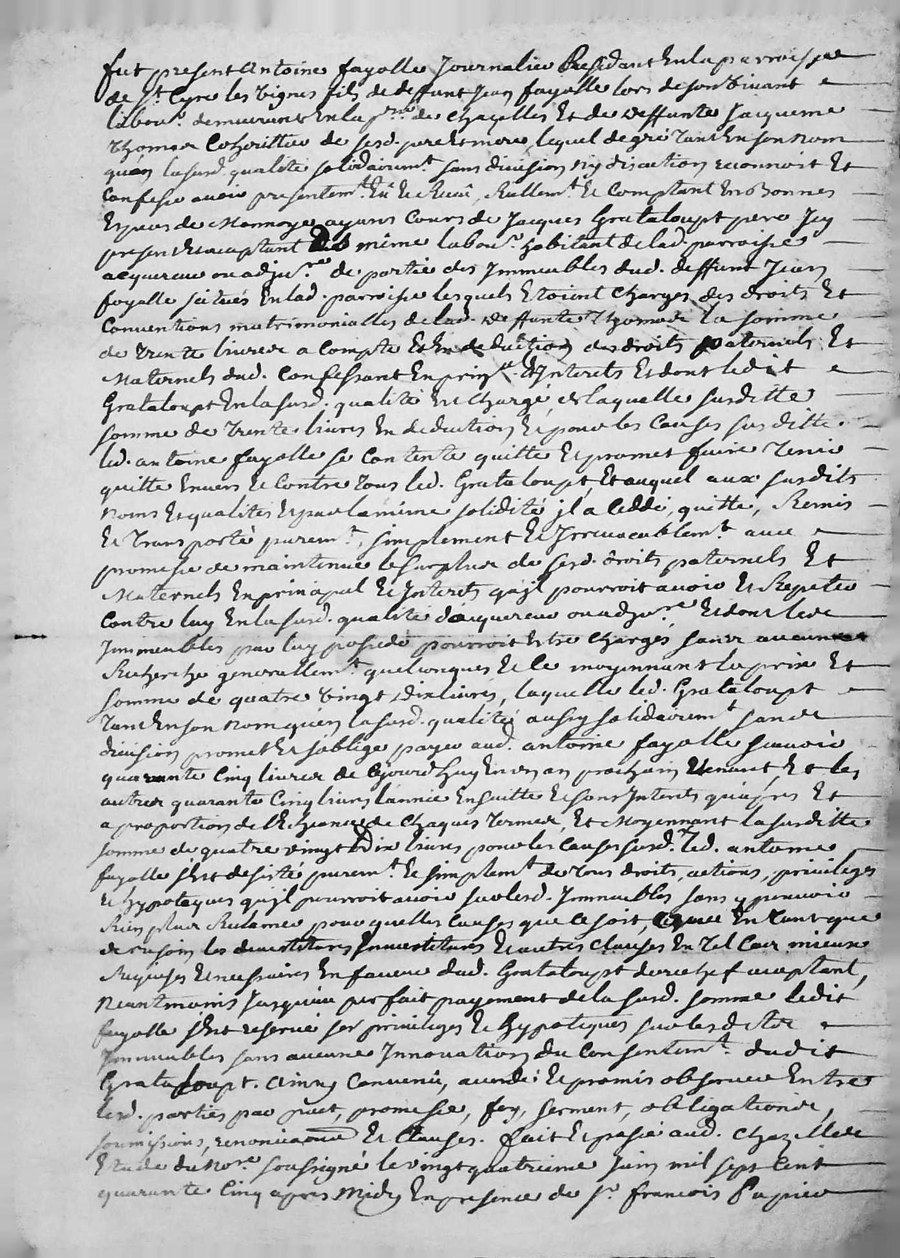 fut present antoine fayolle Journalier Residant En la parroisse
de St. Cyre les vignes fils de deffunt Jean fayolle lors de son vivant
labour. demeurant En la psse de chazelles Et de deffunte Jacqueme
thomas Cohoritier de sesd. pere Et mere, lequel de gré tant En son nom
qu'en la susd. qualité solidairemt sans division ny discution reconnoit Et
Confesse avoir presentemt. Eû Et Reçû, Reellemt. Et Comptant En Bonnes
Especes de Monnoye ayans Cours de Jacques Grataloupt pere Icy
present Et acceptant même labour. habitant de lad. parroisse
acquereur ou adjre. de partie des Immeubles dud. deffunt Jean
fayolle scitués En lad. parroisse lesquels Etoient chargés des droits Et
Conventions matrimonialles de lad. deffunte thomas la somme
de trente livres a Compte Et En deduction des droits paternels Et
Maternels dud. Confessant En prinal Et Interets Et dont ledit
Grataloupt En la susd. qualité Est chargé, de laquelle susditte
somme de trente livres En deduction Et pour les Causes susdittes
led. antoine fayolle se Contente quitte Et promet faire tenir
quitte Envers Et Contre tous led. Grataloupt, Et auquel aux susdits
noms Et qualités Et par la même solidité il a ceddé, quitté, Remis
Et transporté puremt., simplement Et Irrevocablemt. avec
promesse de maintenue le surplus de sesd. droits paternels Et
Maternels En principal Et Interets qu'il pourroit avoir Et Repeter
Contre luy En la susd. qualité d'acquereur ou adjre. Et dont lesd
Immeubles par luy possedé pourroit Estre chargés sans aucunes
Recherche generallemt. quelconques Et ce moyennant le prix Et
somme de quatre vingt dix livres, laquelle led. Grataloupt
tant En son nom qu'en la susd. qualité aussy solidairemt sans
division promet Et s'oblige payer aud. antoine fayolle sçavoir
quarante Cinq livres de ce jourd'huy En un an prochain venant, Et les
autres quarante Cinq livres l'année Ensuitte Et sans Interets qu'apres Et
a proportion de l'Echeance de chaques termes, Et Moyennant la susditte
somme de quatre vingt dix livres pour les Causes susd. led. antoine
fayolle s'Est desisté puremt. Et simplemt. de tous droits, actions, privileges
Et hypoteques qu'il pourroit avoir sur lesd. Immeubles sans y pouvoir
Rien plus Reclamer pour quelles Causes que ce soit, avec En tant que
de besoin les devestitures Investitures Et autres clauses En tel Cas mieux
Requises Et necessaires En faveur dud. Grataloupt derechef acceptant,
Neantmoins jusqu'au parfait payement de la susd. somme ledit
fayolle s'Est reservé ses privileges Et hypoteques sur lesdites
Immeubles sans aucune Innovation du Consentemt. dudit
Grataloupt. ainsy Convenû, accordé Et promis observer Entre
lesd. parties par pact, promesse, foy, serment, obligations,
soumissions, renonciations Et Clauses. fait Et passé aud. Chazelles
Etude du Nore. soussigné le vingt quatrieme Juin mil sept Cent
quarante Cinq apres Midy En presence de Sr. francois Papier